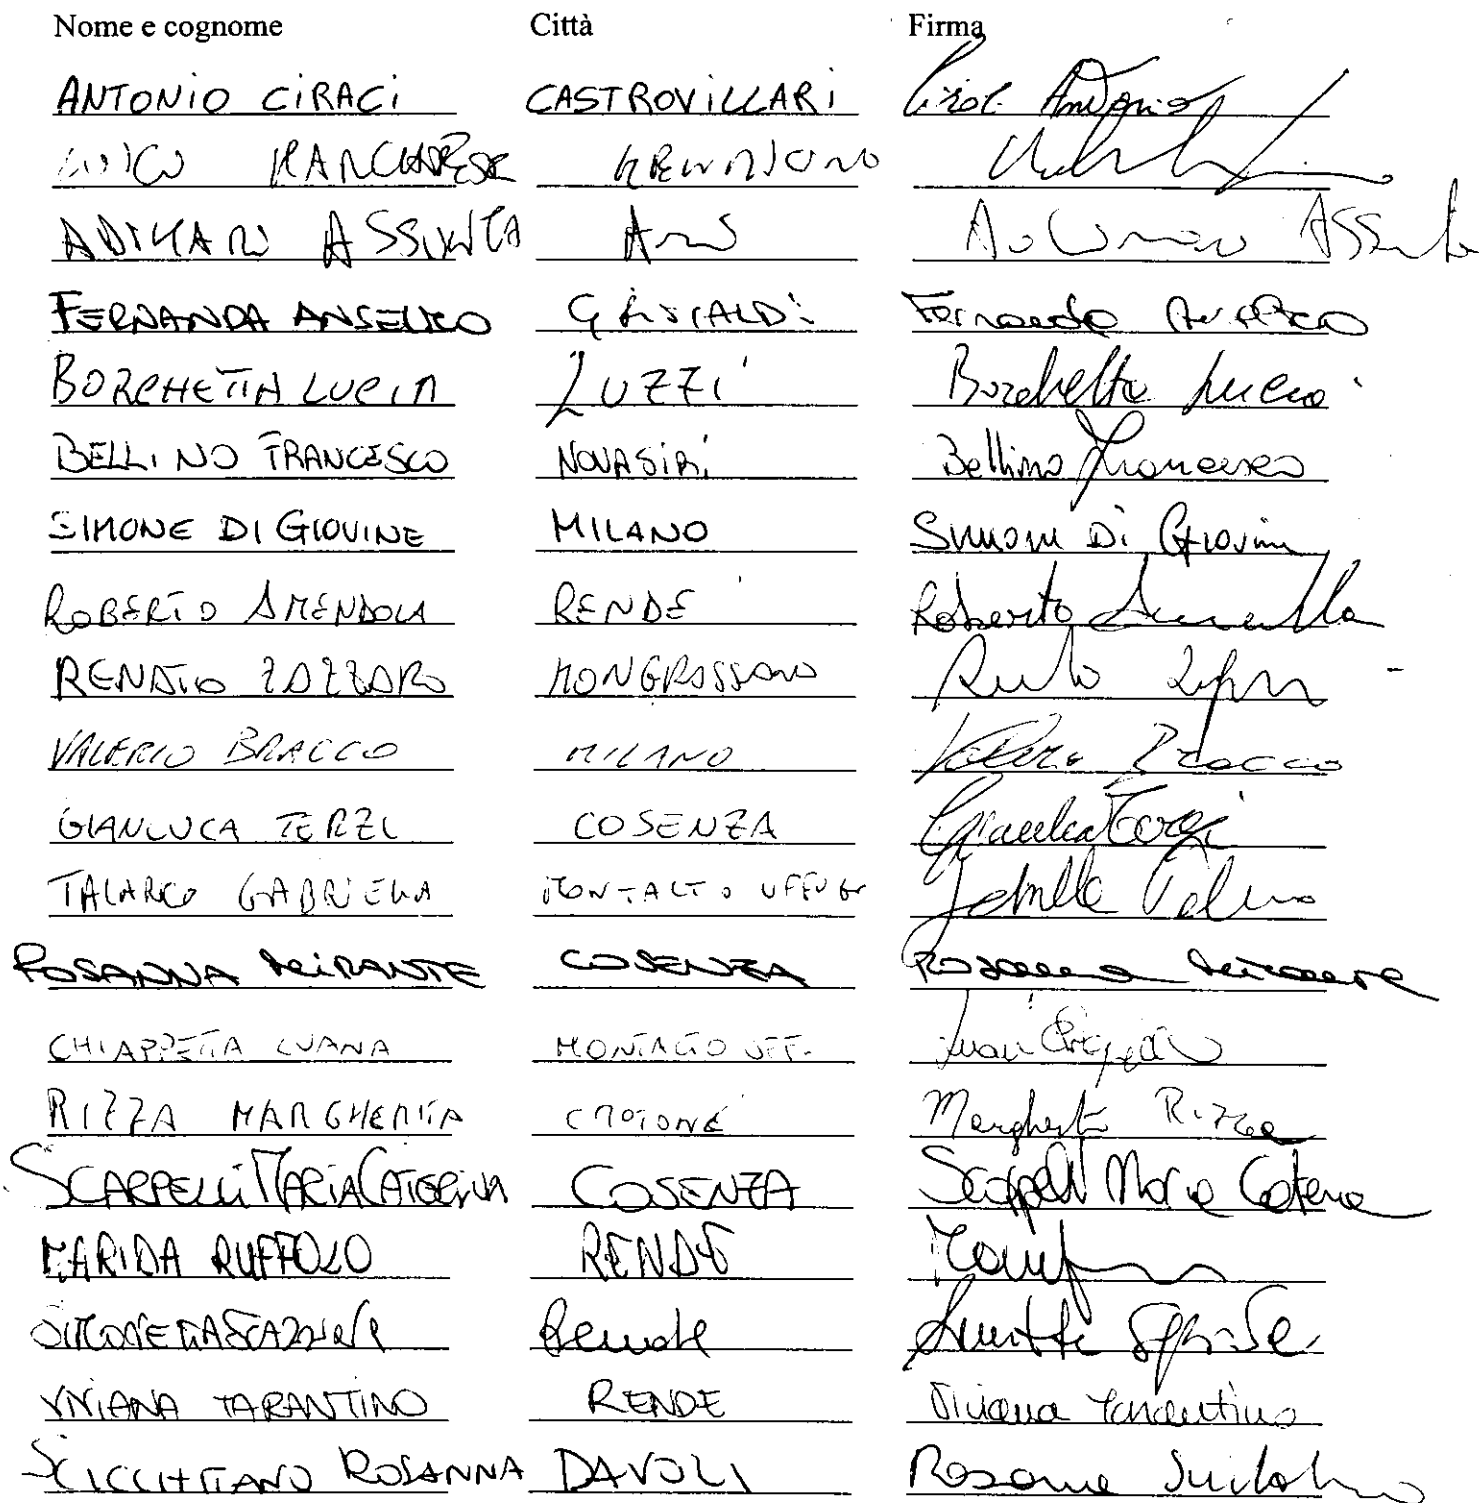 Nome e cognome Città Firma
ANTONIO CIRACI CASTROVILLARI Antonio
ASSUNTA
FERNANDA ANSELMO Fernanda
BORCHETTA LUCIA LUZZI Borchetta Lucia
BELLINO FRANCESCO NOVASIRI Bellino Francesco
SIMONE DI GIOVINE MILANO Simone Di Giovine
ROBERTO AMENDOLA RENDE Roberto Amendola
RENATO ZAZZARO MONGRASSANO
VALERIO BRACCO MILANO Valerio Bracco
GIANLUCA TERZI COSENZA Gianluca Terzi
TALARICO GABRIELLA MONTALTO UFFUGO
ROSANNA MIRANTE COSENZA Rosanna Mirante
CHIAPPETTA LUANA MONTALTO UFF.
RIZZA MARGHERITA CROTONE Margherita Rizza
SCARPELLI MARIA CATERINA COSENZA Scarpelli Maria Caterina
MARIDA RUFFOLO RENDE
Rende
VIVIANA TARANTINO RENDE Viviana Tarantino
SCICCHITANO ROSANNA DAVOLI Rosanna